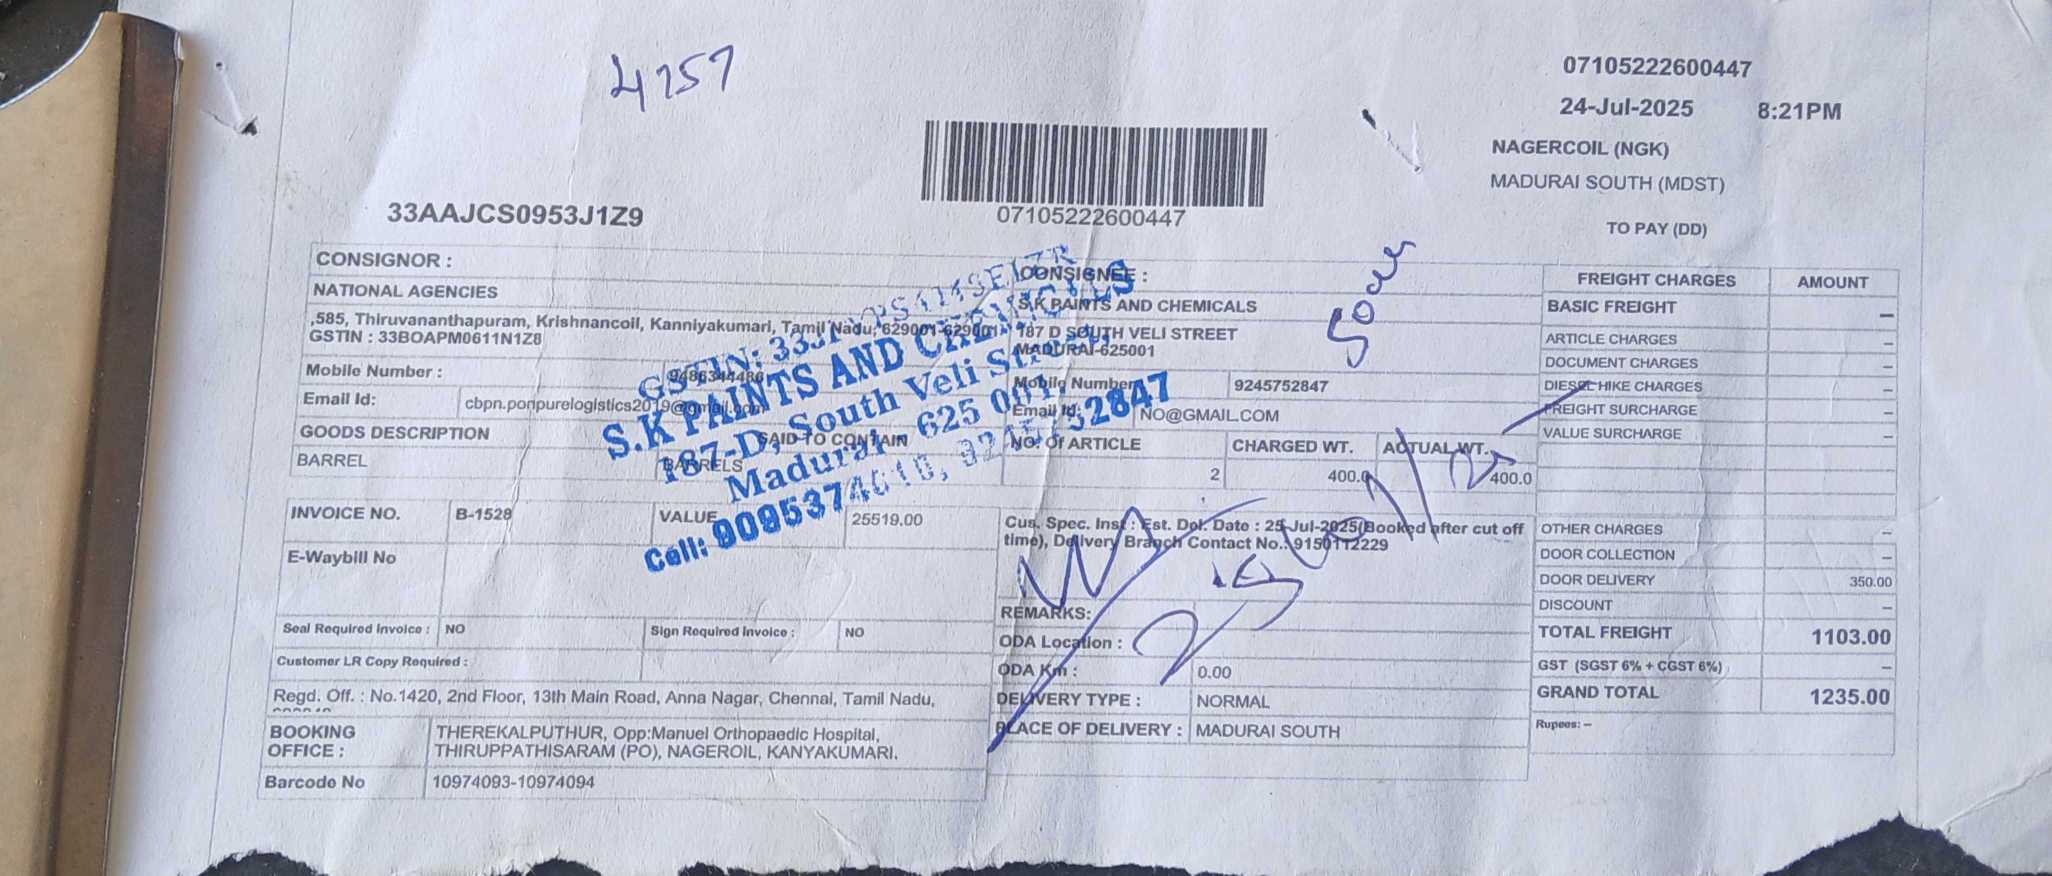 4757
07105222600447
24-Jul-2025 8:21PM
NAGERCOIL (NGK)
MADURAI SOUTH (MDST)
TO PAY (DD)
33AAJCS0953J1Z9
07105222600447
CONSIGNOR :
NATIONAL AGENCIES
,585, Thiruvananthapuram, Krishnancoil, Kanniyakumari, Tamil Nadu, 629001-629001
GSTIN : 33BOAPM0611N1Z8
Mobile Number : 9486344486
Email Id: cbpn.ponpurelogistics2019@gmail.com
GOODS DESCRIPTION SAID TO CONTAIN
BARREL BARRELS
CONSIGNEE :
S.K PAINTS AND CHEMICALS
187 D SOUTH VELI STREET
MADURAI-625001
Mobile Number 9245752847
Email Id: NO@GMAIL.COM
NO. Of ARTICLE CHARGED WT. ACTUAL WT.
2 400.0 400.0
GSTIN:
S.K PAINTS AND CHEMICALS
187-D, South Veli Street,
Madurai 625 001
Cell:
INVOICE NO. B-1528 VALUE 25519.00
E-Waybill No
Seal Required Invoice : NO Sign Required Invoice : NO
Customer LR Copy Required :
Regd. Off. : No.1420, 2nd Floor, 13th Main Road, Anna Nagar, Chennai, Tamil Nadu,
BOOKING OFFICE : THEREKALPUTHUR, Opp:Manuel Orthopaedic Hospital,
THIRUPPATHISARAM (PO), NAGEROIL, KANYAKUMARI.
Barcode No 10974093-10974094
Cus. Spec. Inst : Est. Del. Date : 25-Jul-2025(Booked after cut off
time), Delivery Branch Contact No.: 9150112229
REMARKS:
ODA Location :
ODA Km : 0.00
DELIVERY TYPE : NORMAL
PLACE OF DELIVERY : MADURAI SOUTH
FREIGHT CHARGES AMOUNT
BASIC FREIGHT –
ARTICLE CHARGES –
DOCUMENT CHARGES –
DIESEL HIKE CHARGES –
FREIGHT SURCHARGE –
VALUE SURCHARGE –
OTHER CHARGES –
DOOR COLLECTION –
DOOR DELIVERY 350.00
DISCOUNT –
TOTAL FREIGHT 1103.00
GST (SGST 6% + CGST 6%) –
GRAND TOTAL 1235.00
Rupees: –